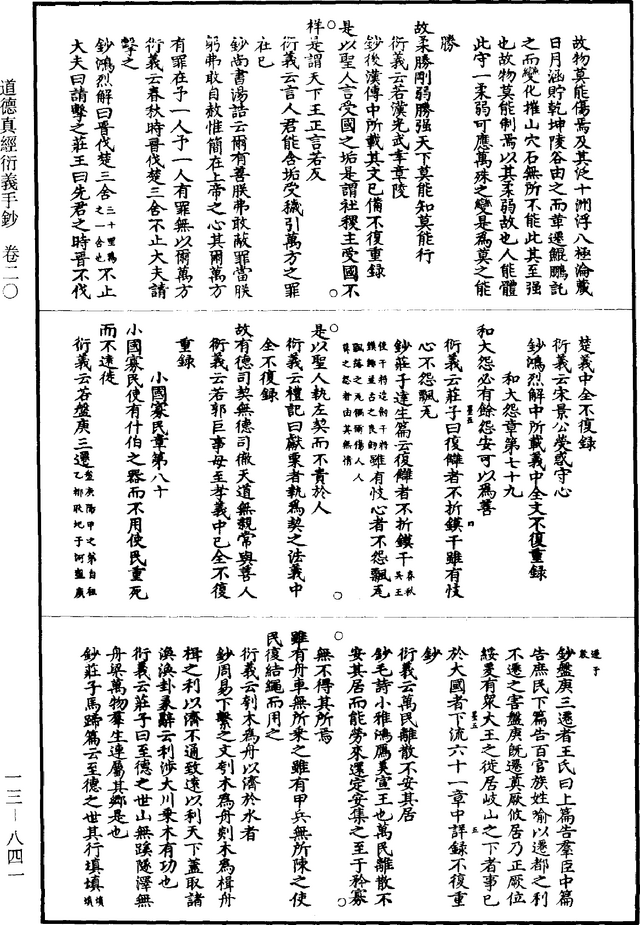 故物莫能傷焉及其泛十洲浮八極淪歲
日月涵貯乾坤陵谷由之而革遷鯤鵬託
之而變化摧山穴石無所不能此其至强
也故物莫能制焉以其柔弱故也人能體
此守一柔弱可應萬殊之變是為莫之能
勝
故柔勝剛弱勝强天下莫能知莫能行
衍義云若漢光武幸章陵
鈔後漢傳中所載其文已備不復重録
是以聖人言受國之垢是謂社稷主受國不
祥是謂天下王正言若反
衍義云言人君能含垢受穢引萬方之罪
社已
鈔尚書湯誥云爾有善朕弗敢蔽罪當朕
躬弗敢自赦惟簡在上帝之心其爾萬方
有罪在予一人予一人有罪無以爾萬方
衍義云春秋時晉伐楚三舍不止大夫請
擊之
鈔鴻烈解曰晉伐楚三舍三十里為之一舍也不止
大夫曰請擊之莊王曰先君之時晉不伐
楚義中全不復録
衍義云宋景公熒惑守心
鈔鴻烈解中所載義中全文不復重録
和大怨章第七十九
和大怨必有餘怨安可以為善
衍義云莊子曰復讎者不折鏌干雖有忮
心不怨飄瓦
鈔莊子達生篇云復讎者不折鏌干春秋吳王使干將造劍干將鏌鋣並古之良劍雖有忮心者不怨飄瓦飄落之瓦偶爾傷人人莫之怨者由其無情
是以聖人執左契而不責於人
衍義云禮記曰獻粟者執為契之法義中
全不復録
故有德司契無德司徹天道無親常與善人
衍義云若郭巨事母至孝義中已全不復
重録
小國寡民章第八十
小國寡民使有什伯之器而不用使民重死
而不遠徙
衍義云若盤庚三遷盤庚陽甲之弟自祖乙都耿圮于河盤庚遷于殷
鈔盤庚三遷者王氏曰上篇告羣臣中篇
告庶民下篇告百官族姓喻以遷都之利
不遷之害盤庚既遷奠厥攸居乃正厥位
綏爰有衆大王之徙居岐山之下者事已
於大國者下流六十一章中詳録不復重
鈔
衍義云萬民離散不安其居
鈔毛詩小雅鴻鴈美宣王也萬民離散不
安其居而能勞來還定安集之至于矜寡
無不得其所焉
雖有舟車無所乘之雖有甲兵無所陳之使
民復結繩而用之
衍義云刳木為舟以濟於水者
鈔周易下繫之文刳木為舟剡木為楫舟
楫之利以濟不通致遠以利天下蓋取諸
渙渙卦彖辭云利涉大川乘木有功也
衍義云莊子曰至德之世山無蹊隧澤無
舟梁萬物羣生連屬其鄉是也
鈔莊子馬蹄篇云至德之世其行填填填
道德真經衍義手鈔 卷二〇
一三－八四一